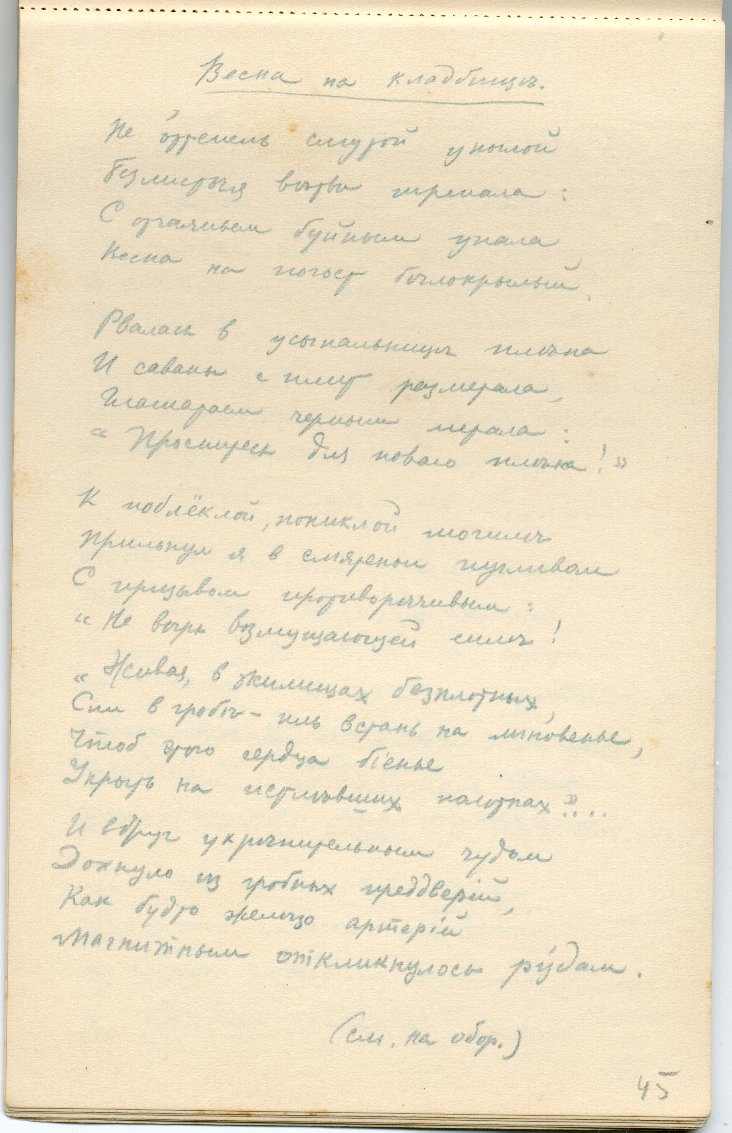 Весна на кладбищѣ.
Не оттепель слизой унылой
Безлистыя вѣтви трепала:
С отчаяньем буйным упала
Весна на погост бѣлокрылый.
Рвалась в усыпальницы плѣна
И саваны с плит размерала,
Глашатаем черным мерала:
"Проснитесь для новаго плѣна!"
К поблёклой, пониклой могилѣ
Прильнул я в смятеньи пугливом
С призывом противорѣчивым:
"Не вѣрь возмущающей силѣ!
"Живая, в жилищах безплотных,
Спи в гробѣ – иль встань на мгновенье,
Чтоб этого сердца біенье
Укрыть на истлѣвших полотнах"...
И вдруг укрѣпительным чудом
Дохнуло из гробных преддверій,
Как будто желѣзо артерій
Магнитным откликнулось ру́дам.
(см. на обор.)
45